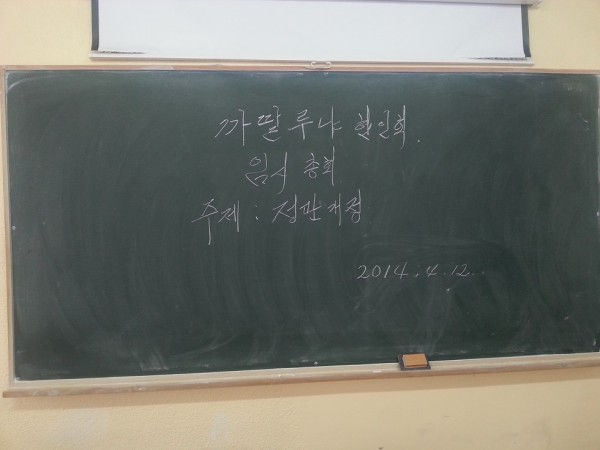 까딸루냐 한인회.
임시 총회
주제 : 정관개정
2014. 4. 12..